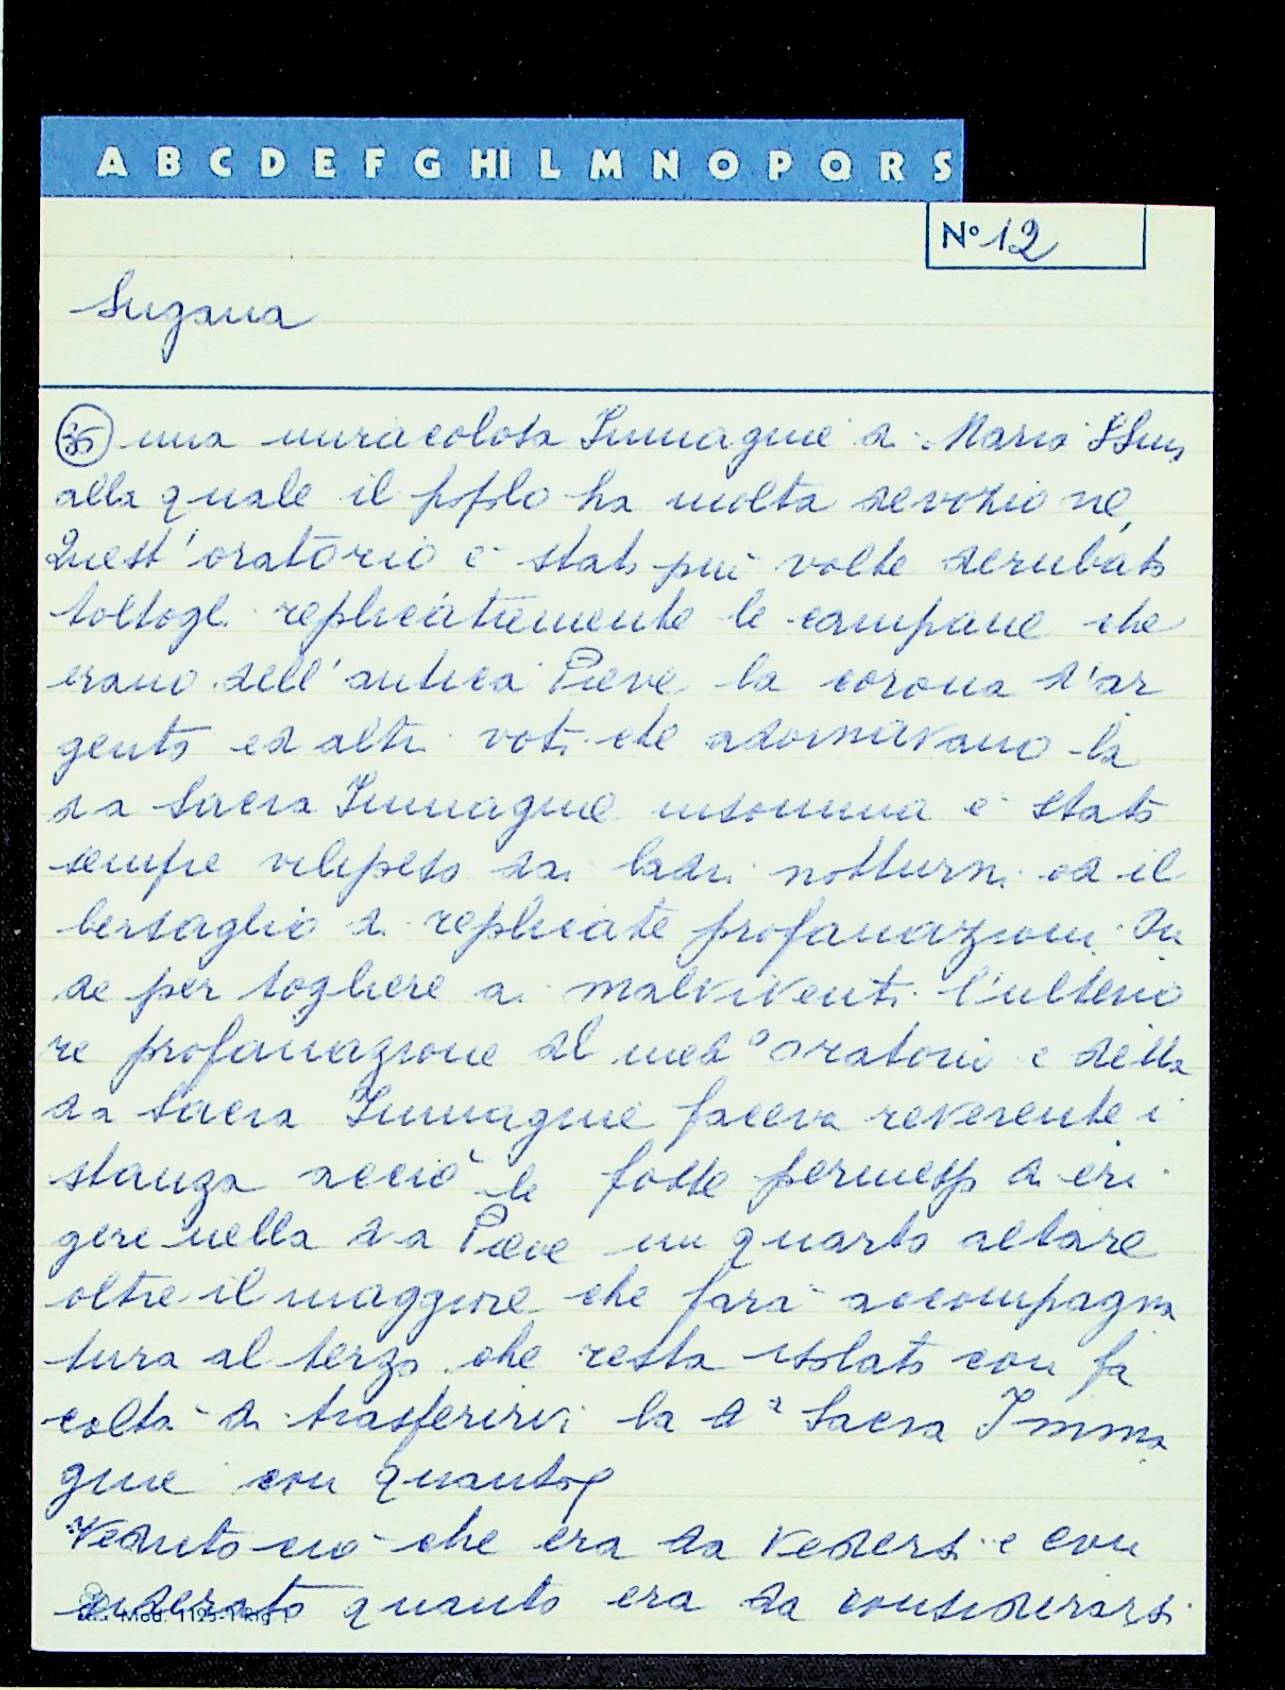 A B C D E F G HI L M N O P Q R S
N° 12
Sugana
35 una miracolosa Immagine di Maria SSma
alla quale il popolo ha molta devozione,
Quest'oratorio è stato più volte derubato
toltogli replicatamente le campane che
erano dell'antica Pieve la corona d'ar
gento ed altri voti che adornavano la
da Sacra Immagine insomma è stato
sempre vilipeso dai ladri notturni ed il
bersaglio di replicate profanazioni. In
de per togliere ai malviventi l'ulterio
re profanazione al med° oratorio e della
da Sacra Immagine faceva reverente i
stanza acciò le fosse permesso di eri
gere nella da Pieve un quarto altare
oltre il maggiore che farà accompagna
tura al terzo che resta isolato con fa
coltà di trasferirvi la da Sacra Imma
gine con quanto
Veduto ciò che era da vedersi e con
siderato quanto era da considerarsi
Mod. 1125-1 Rig 1